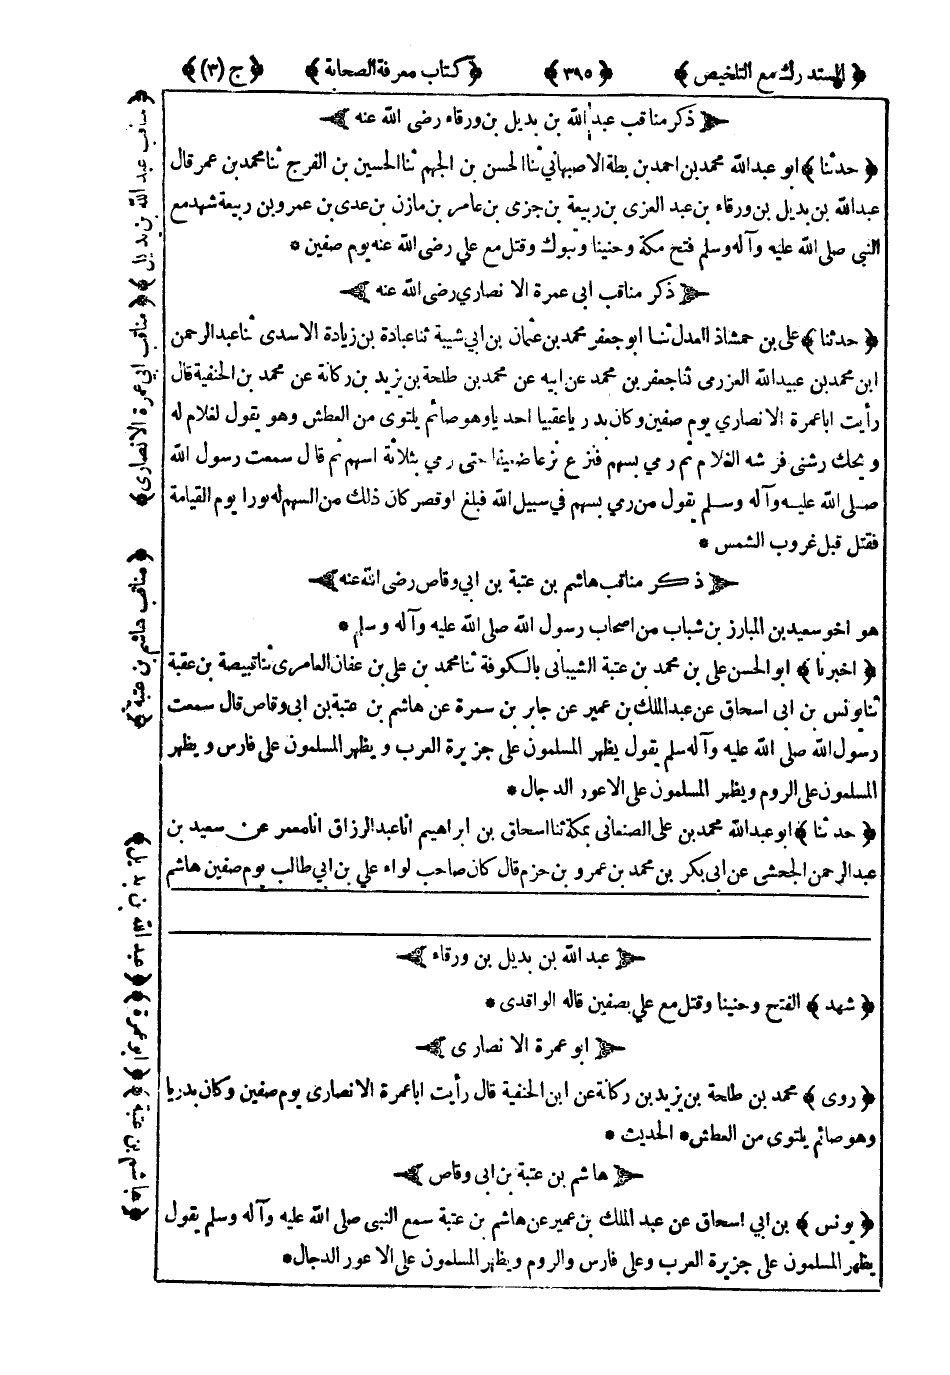 ﴿ المستدرك مع التلخيص ﴾ ﴿ ٣٩٥ ﴾ ﴿ كتاب معرفة الصحابة ﴾ ﴿ ج (٣) ﴾
ذكر مناقب عبد الله بن بديل بن ورقاء رضى الله عنه
﴿ حدثنا ﴾ ابو عبدالله محمد بن احمد بن بطة الاصبهاني ثنا الحسن بن الجهم ثنا الحسين بن الفرج ثنا محمد بن عمر قال
عبدالله بن بديل بن ورقاء بن عبد العزى بن ربيعة بن جزى بن عامر بن مازن بن عدى بن عمرو بن ربيعة شهد مع
النبى صلى الله عليه وآله وسلم فتح مكة وحنينا وتبوك وقتل مع علي رضى الله عنه يوم صفين *
ذكر مناقب ابى عمرة الانصاري رضى الله عنه
﴿ حدثنا ﴾ على بن حمشاذ العدل ثنا ابو جعفر محمد بن عثمان بن ابي شيبة ثنا عبادة بن زيادة الاسدى ثنا عبد الرحمن
ابن محمد بن عبيد الله العزرمى ثنا جعفر بن محمد عن ابيه عن محمد بن طلحة بن يزيد بن ركانة عن محمد بن الحنفية قال
رأيت ابا عمرة الانصاري يوم صفين وكان بدريا عقبيا احديا وهو صائم يلتوى من العطش وهو يقول لغلام له
ويحك رشنى فرشه الغلام ثم رمي بسهم فنزع نزعا ضعيفا حتى رمي بثلاثة اسهم ثم قال سمعت رسول الله
صلى الله عليه وآله وسلم يقول من رمي بسهم في سبيل الله فبلغ او قصر كان ذلك من السهم له نورا يوم القيامة
فقتل قبل غروب الشمس *
ذكر مناقب هاشم بن عتبة بن ابى وقاص رضى الله عنه
هو اخو سعيد بن المبارز بن شباب من اصحاب رسول الله صلى الله عليه وآله وسلم *
﴿ اخبرنا ﴾ ابو الحسن على بن محمد بن عتبة الشيبانى بالكوفة ثنا محمد بن على بن عفان العامرى ثنا قبيصة بن عقبة
ثنا يونس بن ابى اسحاق عن عبد الملك بن عمير عن جابر بن سمرة عن هاشم بن عتبة بن ابى وقاص قال سمعت
رسول الله صلى الله عليه وآله سلم يقول يظهر المسلمون على جزيرة العرب و يظهر المسلمون على فارس و يظهر
المسلمون على الروم ويظهر المسلمون على الاعور الدجال *
﴿ حدثنا ﴾ ابو عبدالله محمد بن على الصنعانى بمكة ثنا اسحاق بن ابراهيم انا عبد الرزاق انا معمر عن سعيد بن
عبدالرحمن الجحشى عن ابى بكر بن محمد بن عمرو بن حزم قال كان صاحب لواء علي بن ابي طالب يوم صفين هاشم
عبد الله بن بديل بن ورقاء
﴿ شهد ﴾ الفتح وحنينا وقتل مع علي بصفين قاله الواقدى *
ابو عمرة الانصارى
﴿ روى ﴾ محمد بن طلحة بن يزيد بن ركانة عن ابن الحنفية قال رأيت ابا عمرة الانصارى يوم صفين وكان بدريا
وهو صائم يلتوى من العطش * الحديث *
هاشم بن عتبة بن ابى وقاص
﴿ يونس ﴾ بن ابي اسحاق عن عبد الملك بن عمير عن هاشم بن عتبة سمع النبى صلى الله عليه وآله وسلم يقول
يظهر المسلمون على جزيرة العرب وعلى فارس والروم ويظهر المسلمون على الاعور الدجال *
﴿ مناقب عبد الله بن بديل ﴾
﴿ مناقب ابي عمرة الانصارى ﴾
﴿ مناقب هاشم بن عتبة ﴾
﴿ عبد الله بن بديل ﴾
﴿ ابو عمرة ﴾
﴿ هاشم بن عتبة ﴾